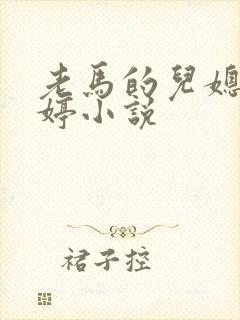 老馬的兒媳
婷小説
裙子控